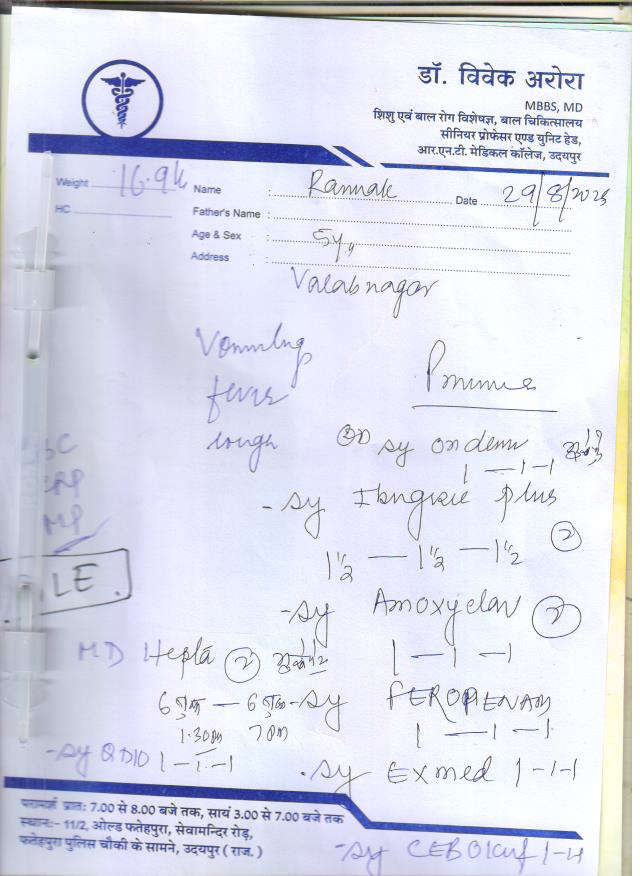 डॉ. विवेक अरोरा
MBBS, MD
शिशु एवं बाल रोग विशेषज्ञ, बाल चिकित्सालय
सीनियर प्रोफेसर एण्ड युनिट हेड,
आर.एन.टी. मेडिकल कॉलेज, उदयपुर
Weight 16.9k Name : Date 29/8/2025
HC Father's Name :
Age & Sex : 5y
Address :
Valabnagar
Vomiting
fever
cough
sy ondem
1 - 1 - 1
- sy Plus
1 1/2 - 1 1/2 - 1 1/2 2
- sy Amoxyclav 2
1 - 1 - 1
MD Hepta 2
6 - 6 - sy FEROPENAM
1.30pm 7pm 1 - 1 - 1
- sy 1 - 1 - 1
. sy Exmed 1-1-1
परामर्श प्रातः 7.00 से 8.00 बजे तक, सायं 3.00 से 7.00 बजे तक
स्थानः- 11/2, ओल्ड फतेहपुरा, सेवामन्दिर रोड़,
फतेहपुरा पुलिस चौकी के सामने, उदयपुर ( राज. )
- sy